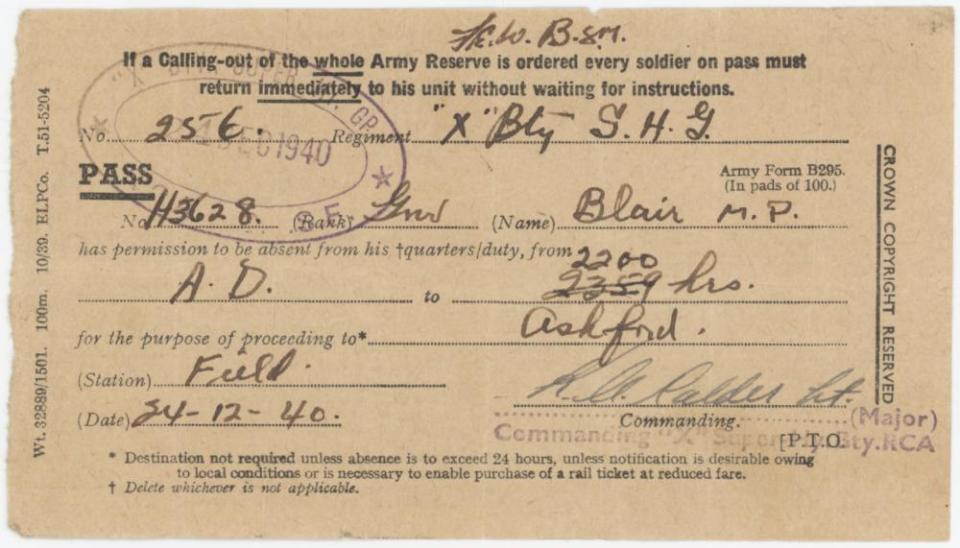 B.S.M.
If a Calling-out of the whole Army Reserve is ordered every soldier on pass must
return immediately to his unit without waiting for instructions.
No. 256. Regiment "X" Bty S.H.G.
DEC 1940
PASS
Army Form B295.
(In pads of 100.)
No. H3628. (Rank) Gnr (Name) Blair M.P.
has permission to be absent from his †quarters/duty, from
2200
A.D. to 2359 hrs.
for the purpose of proceeding to* Ashford.
(Station) Field.
(Date) 24-12-40. Calder Lt.
Commanding. (Major)
Commanding "X" Super Bty.RCA
[P.T.O.
* Destination not required unless absence is to exceed 24 hours, unless notification is desirable owing
to local conditions or is necessary to enable purchase of a rail ticket at reduced fare.
† Delete whichever is not applicable.
Wt. 32889/1501. 100m. 10/39. ELPCo. T.51-5204
CROWN COPYRIGHT RESERVED